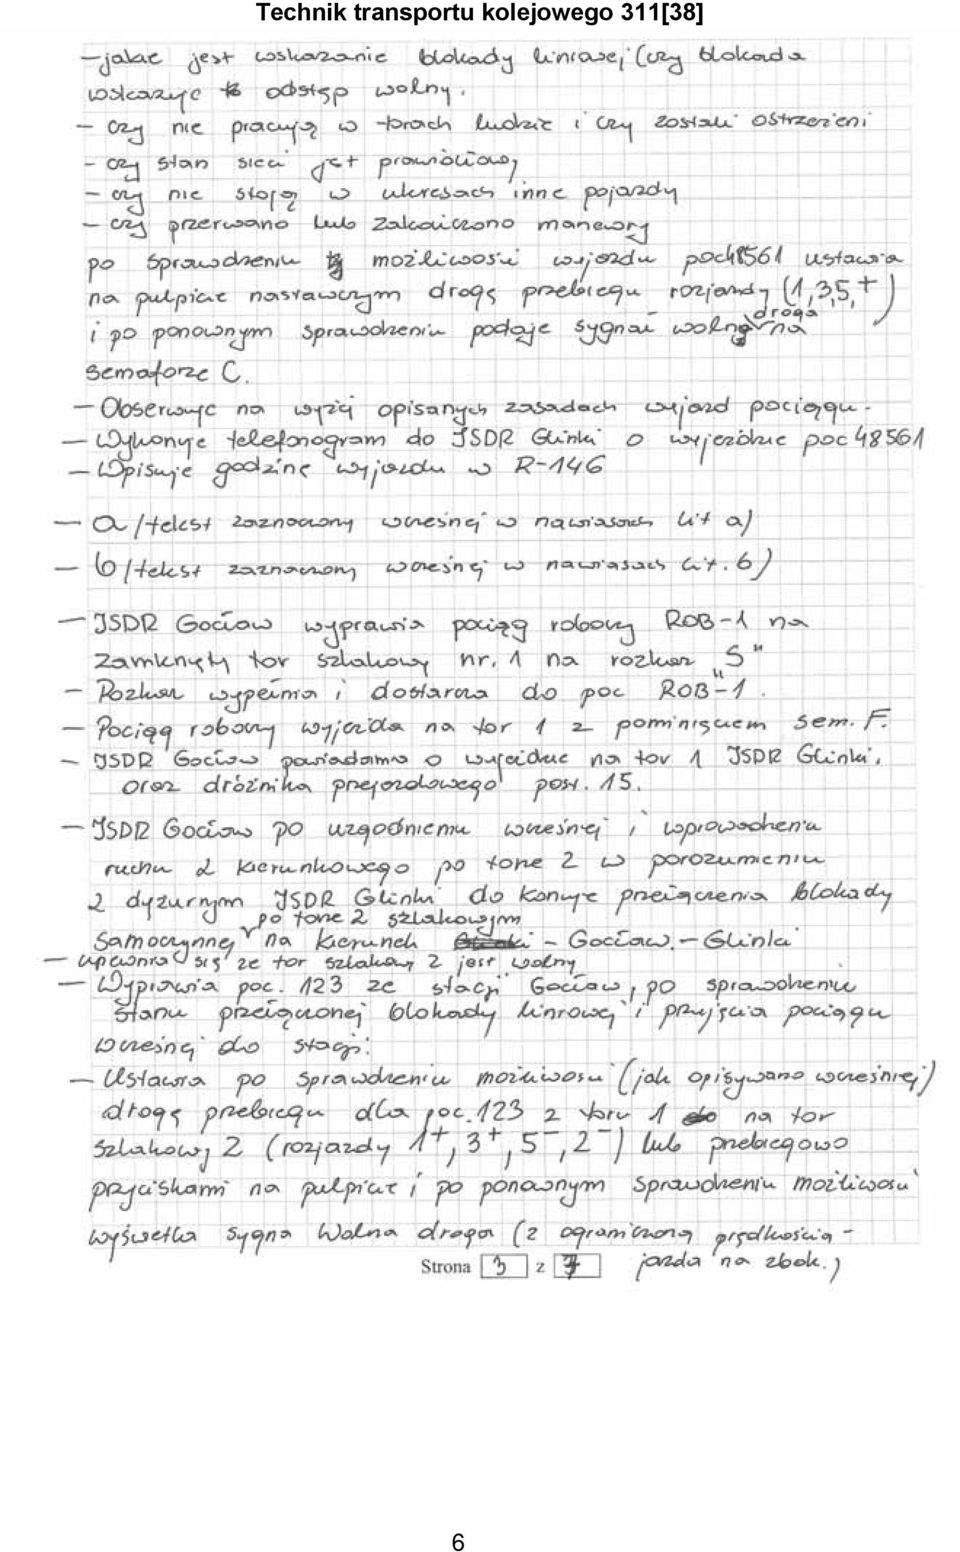 Technik transportu kolejowego 311[38]
– jakie jest wskazanie blokady liniowej (czy blokada
wskazuje odstęp wolny.
– czy nie pracują w torach ludzie i czy zostali ostrzeżeni
– czy stan sieci jest prawidłowy
– czy nie stoją w ukresach inne pojazdy
– czy przerwano lub zakończono manewry
po sprawdzeniu możliwości wyjazdu poc48561 ustawia
na pulpicie nastawczym drogę przebiegu rozjazdy (1,3,5,+)
i po ponownym sprawdzeniu podaje sygnał wolna droga na
semaforze C.
– Obserwuje na wyżej opisanych zasadach wyjazd pociągu.
– Wykonuje telefonogram do ISDR Glinki o wyjeździe poc 48561
– Wpisuje godzinę wyjazdu w R-146
– a/tekst zaznaczony wcześniej w nawiasach lit a)
– b/tekst zaznaczony wcześniej w nawiasach lit. b)
– ISDR Gocław wyprawia pociąg roboczy ROB-1 na
zamknięty tor szlakowy nr. 1 na rozkaz „S"
– Rozkaz wypełnia i dostarcza do poc ROB-1.
– Pociąg roboczy wyjeżdża na tor 1 z pominięciem sem. F.
– ISDR Gocław powiadamia o wyjeździe na tor 1 ISDR Glinki,
oraz dróżnika przejazdowego post. 15.
– ISDR Gocław po uzgodnieniu wcześniej i wprowadzeniu
ruchu 2 kierunkowego po torze 2 w porozumieniu
z dyżurnym ISDR Glinki dokonuje przełączenia blokady
samoczynnej po torze 2 szlakowym na kierunek – Gocław – Glinki
– upewnia się że tor szlakowy 2 jest wolny
– Wyprawia poc. 123 ze stacji Gocław, po sprawdzeniu
stanu przełączonej blokady liniowej i przyjścia pociągu
wcześniej do stacji.
– Ustawia po sprawdzeniu możliwości (jak opisywano wcześniej)
drogę przebiegu dla poc. 123 z toru 1 na tor
szlakowy 2 (rozjazdy 1+, 3+, 5–, 2–) lub przebiegowo
przyciskami na pulpicie i po ponownym sprawdzeniu możliwości
wyświetla sygna Wolna droga (z ograniczoną prędkością –
jazda na zbok.)
Strona 3 z 7
6